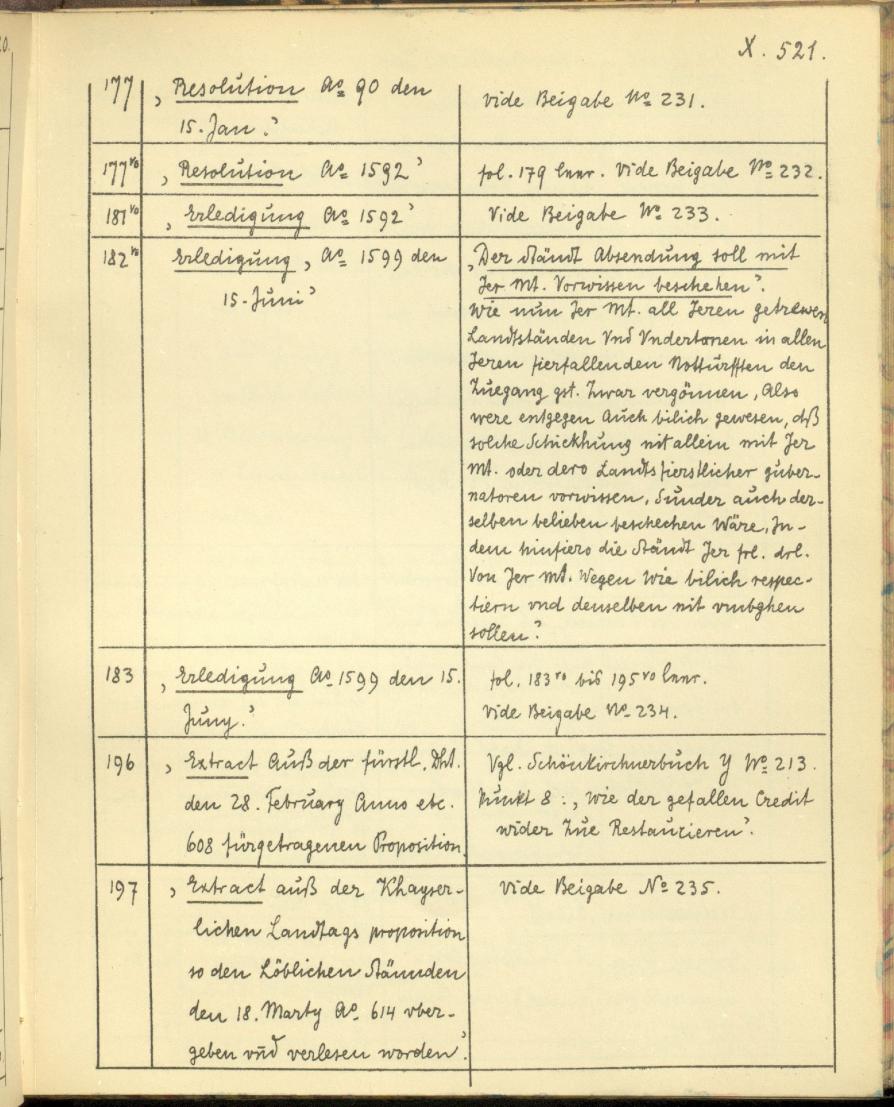 X. 521.
177 ‚Resolution Ao 90 den
15. Jan.‘
vide Beigabe No 231.
177vo ‚Resolution Ao 1592‘
fol. 179 leer. Vide Beigabe No 232.
181vo ‚Erledigung Ao 1592‘
Vide Beigabe No 233.
182vo Erledigung, Ao 1599 den
15. Juni‘
‚Der Ständt Absendung soll mit
Jer Mt. Vorwissen beschehen‘.
Wie nun Jer Mt. all Jeren getrewen
Landtständen Vnd Vndertonen in allen
Jeren fierfallenden Notturfften den
Zuegang gst. Zwar vergönnen, Also
were entgegen Auch bilich gewesen, dß
solche Schickhung nit allein mit Jer
Mt. oder dero Landtsfierstlicher guber-
natoren vorwissen, Sunder auch der-
selben belieben beschechen Wäre, In-
dem hinfiero die Ständt Jer frl. drl.
Von Jer Mt. Wegen Wie bilich respec-
tiern vnd denselben nit vmbghen
sollen‘.
183 ‚Erledigung Ao 1599 den 15.
Juny.‘
fol. 183vo bis 195vo leer.
Vide Beigabe No 234.
196 ‚Extract Auß der fürstl. Dht.
den 28. February Anno etc.
608 fürgetragenen Proposition
Vgl. Schönkirchnerbuch Y No 213.
Punkt 8: ‚Wie der gefallen Credit
wider Zue Restaurieren‘.
197 ‚Extract auß der Khayser-
lichen Landtags proposition
so den Löblichen Stännden
den 18. Marty Ao 614 vber-
geben vnd verlesen worden‘.
Vide Beigabe No 235.